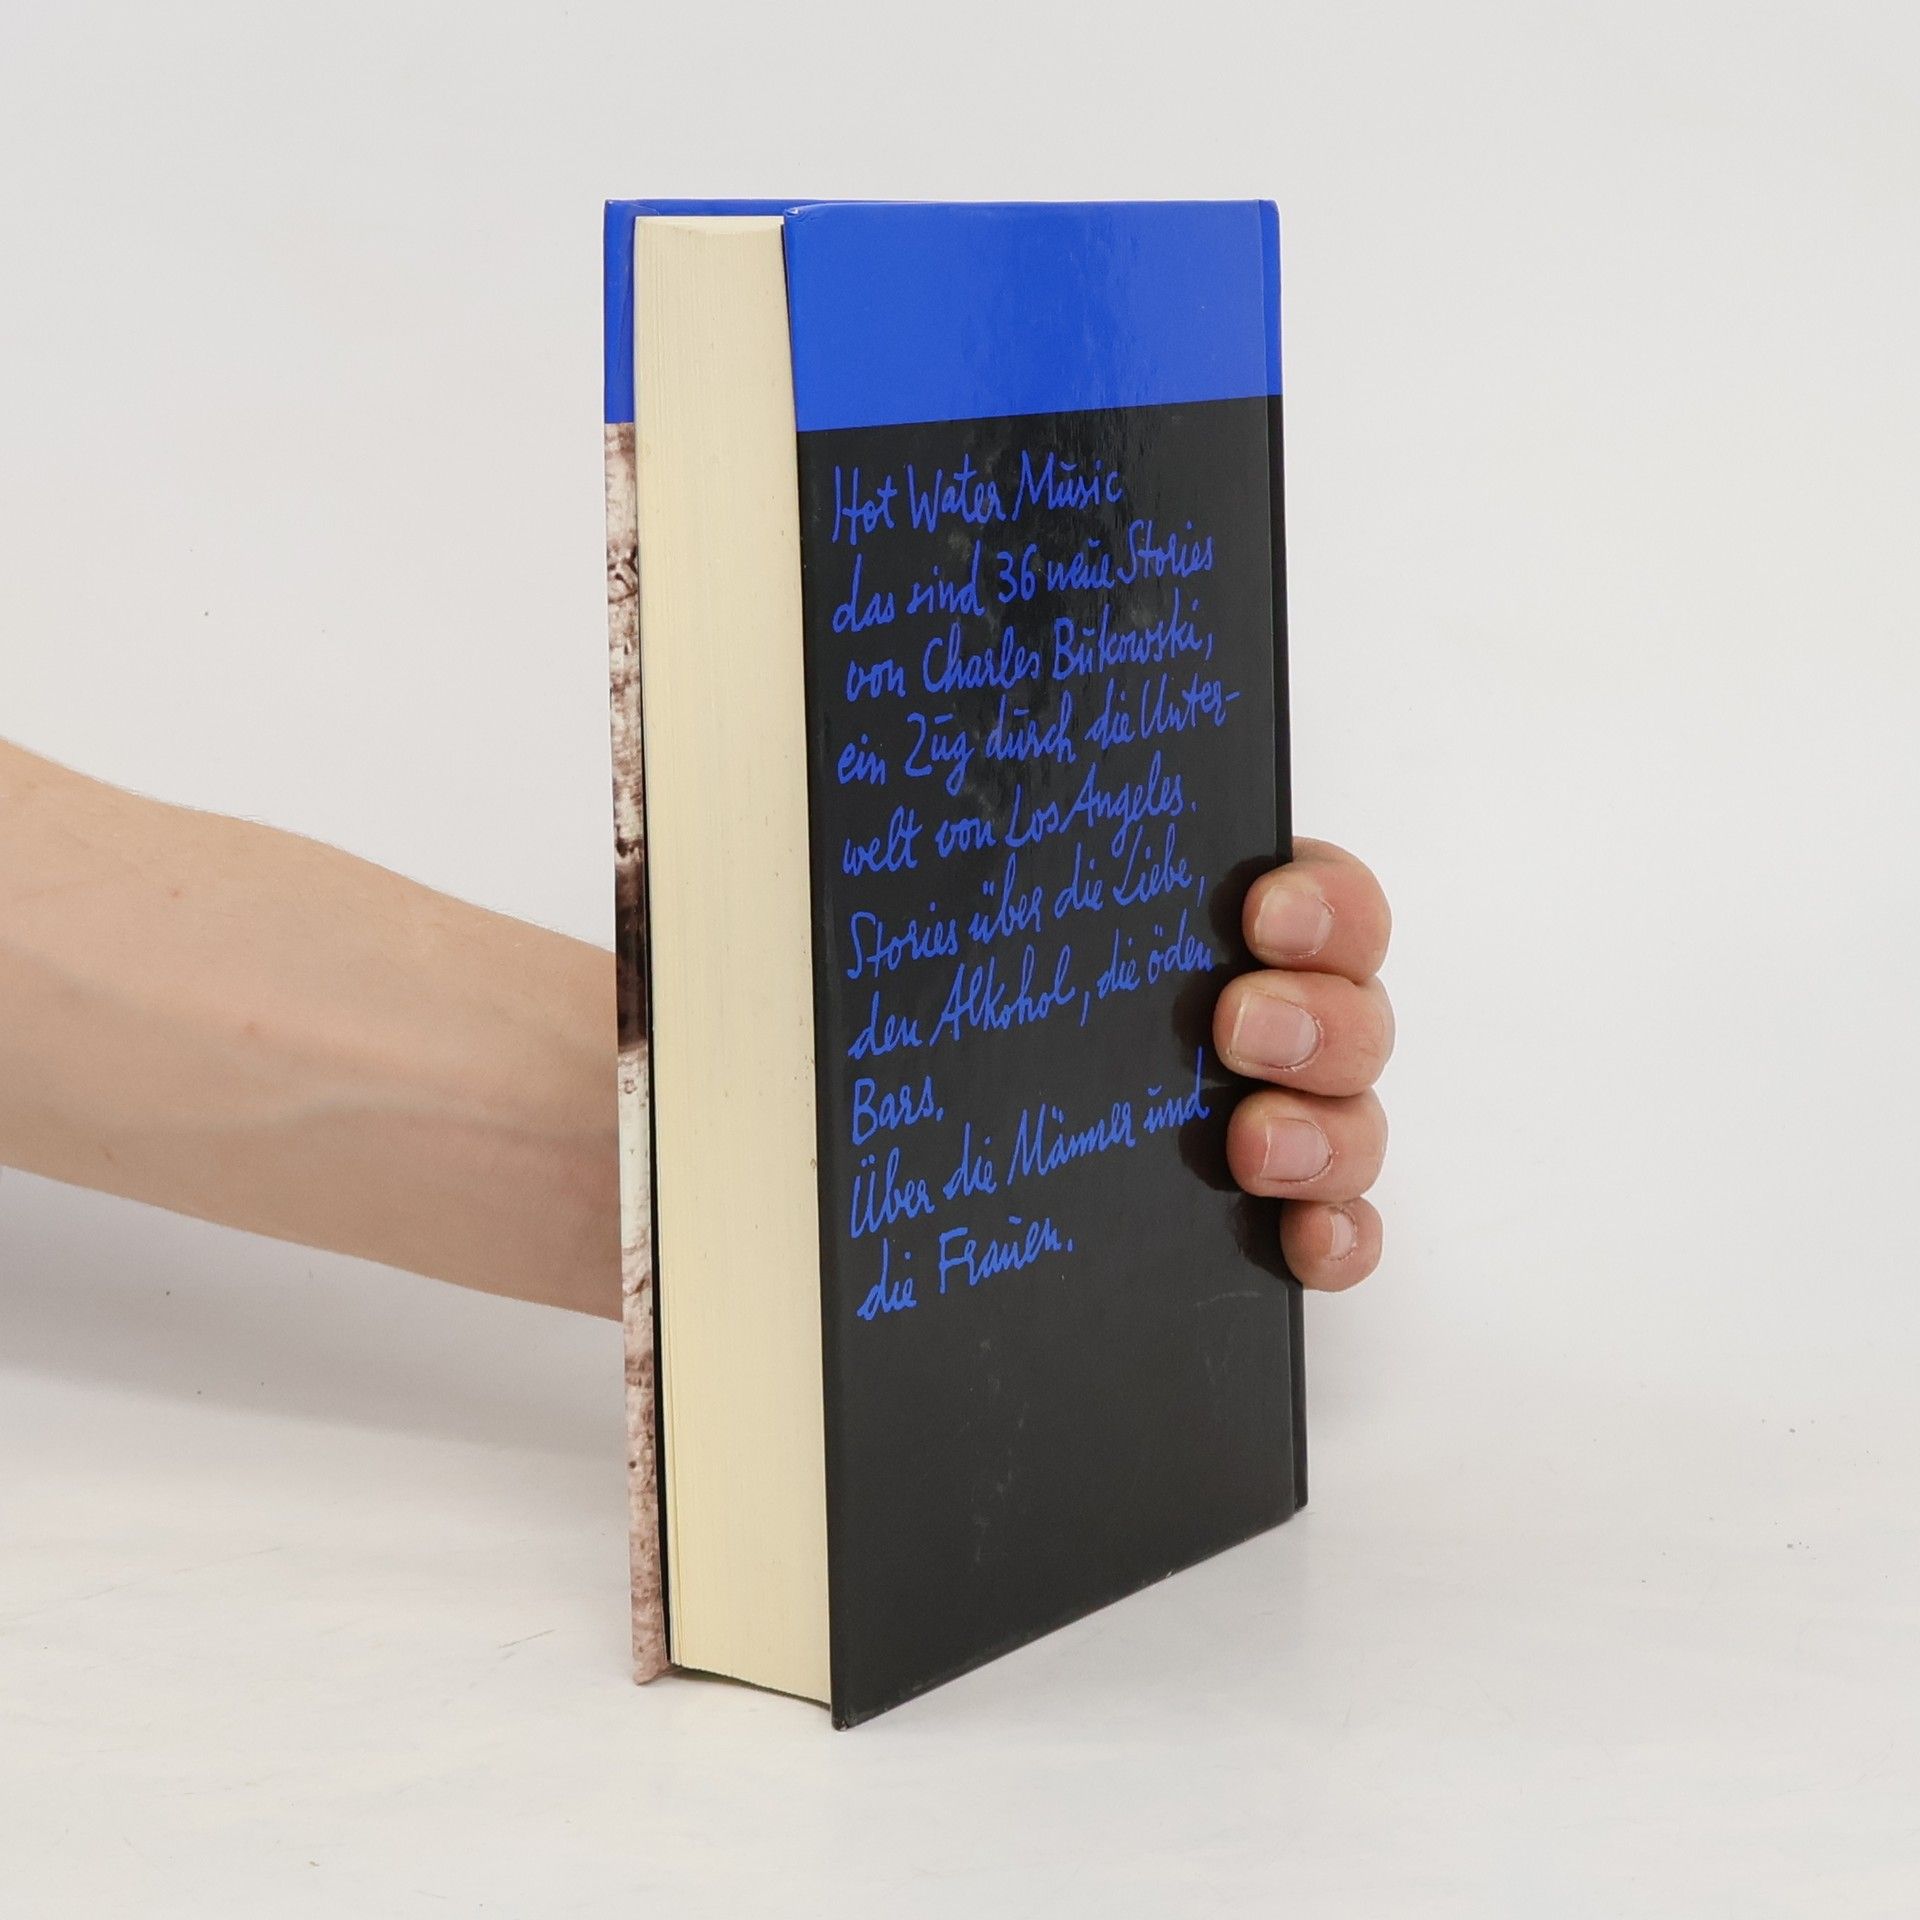 Hot Water Music
das sind 36 neue Stories
von Charles Bukowski,
ein Zug durch die Unter-
welt von Los Angeles.
Stories über die Liebe,
den Alkohol, die öden
Bars.
Über die Männer und
die Frauen.